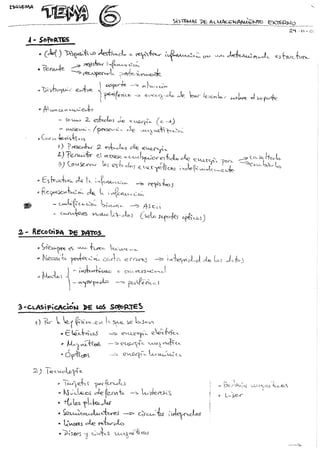 ESQUEMA
TEMA 6
SISTEMAS DE ALMACENAMIENTO EXTERNO
1 - SOPORTES
• (def) Dispositivo destinado a registrar información con una determinada estructura
• Permite → registrar información
→ recuperarla posteriormente
• Distinguir entre soporte → almacén
periférico → encargado de leer/escribir sobre el soporte
• Almacenamiento
- tener 2 estados de energía
- ausencia / presencia de
• Características
1) Presentar 2 estados de energía
2) Permitir el acceso a cualquier estado de energía para
3) Conservar los estados energéticos indefinidamente
• Estructura de la información → registros
• Representación de la información
- codificación binaria → ASCII
- (solo soportes ópticos)
2 - RECOGIDA DE DATOS
• Siempre es una tarea humana
• Necesita → integridad de los datos
• Modos
→ periféricos
3 - CLASIFICACIÓN DE LOS SOPORTES
1) Por la ley física en la que se basan
• Eléctricos → energía eléctrica
• Magnéticos → energía magnética
• Ópticos → energía lumínica
2) Tecnología
• Tarjetas perforadas
• Núcleos de ferrita → histéresis
• Hilos plateados
• Semiconductores → circuitos integrados
• Líneas de retardo
• Discos y cintas magnéticos
• Láser